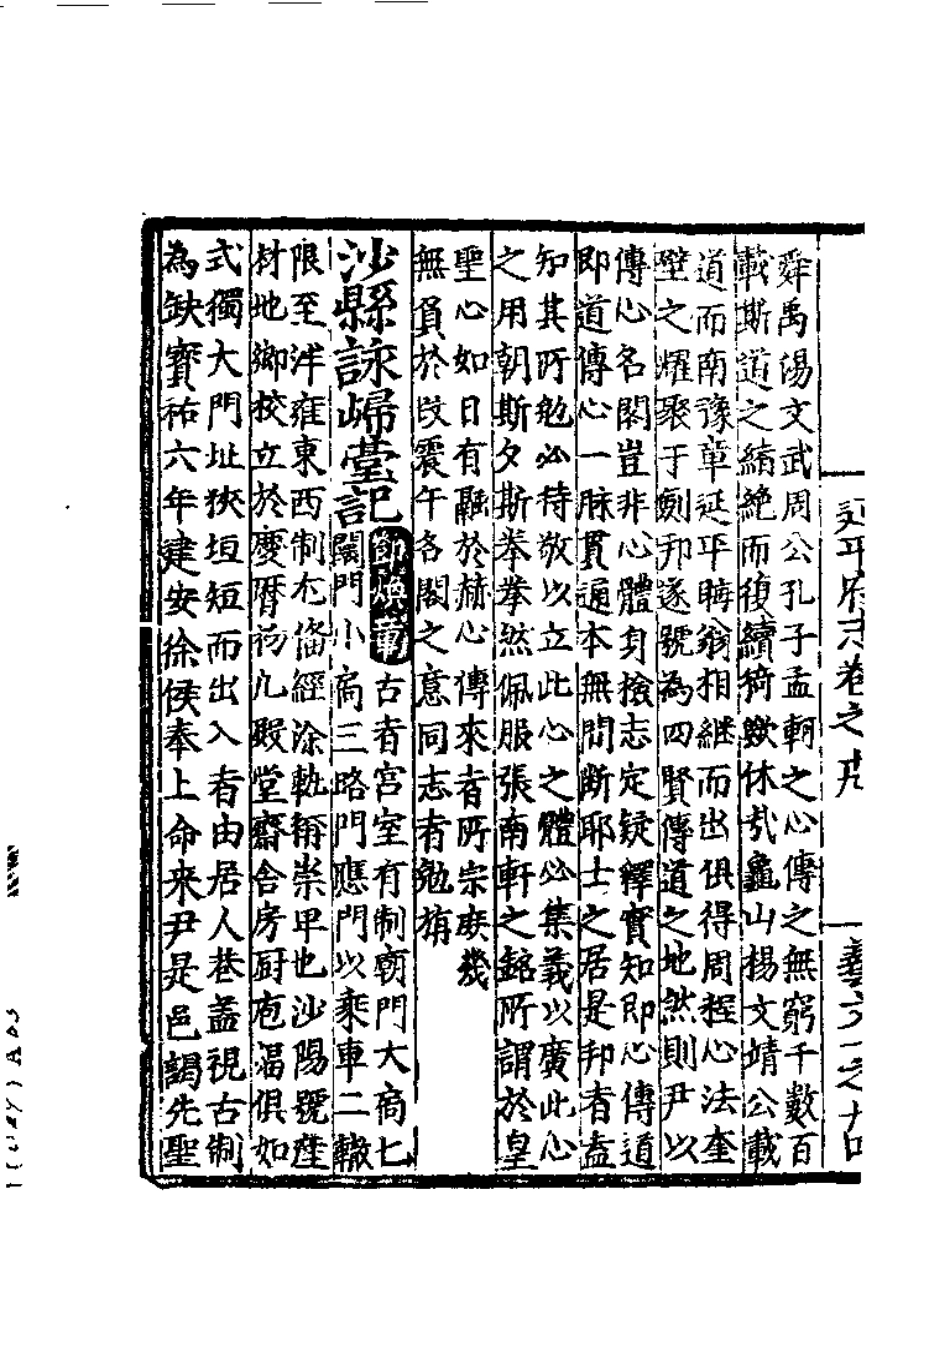 舜禹湯文武周公孔子孟軻之心傳之無窮千數百
載斯道之緒絶而復續猗歟休哉龜山楊文靖公載
道而南豫章延平晦翁相繼而出俱得周程心法奎
壁之耀聚于劍邦遂號為四賢傳道之地然則尹以
傳心名閣豈非心體身撿志定疑釋實知即心傳道
即道傳心一脉貫通本無間斷耶士之居是邦者盍
知其所勉必持敬以立此心之體必集義以廣此心
之用朝斯夕斯拳拳然佩服張南軒之銘所謂於皇
聖心如日有融於赫心傳來者所宗庶幾
無負於改震午名閣之意同志者勉旃
沙縣詠歸臺記 古者宮室有制廟門大扃七
闈門小扃三路門應門以乘車二轍
限至泮雍東西制尤俻經涂軌稱崇甲也沙陽號産
材地鄉校立於慶曆初凡殿堂齋舍房厨庖湢俱如
式獨大門址狹垣短而出入者由居人巷盖視古制
為缺寳祐六年建安徐侯奉上命来尹是邑謁先聖
延平府志卷之十九
藝文一之十四